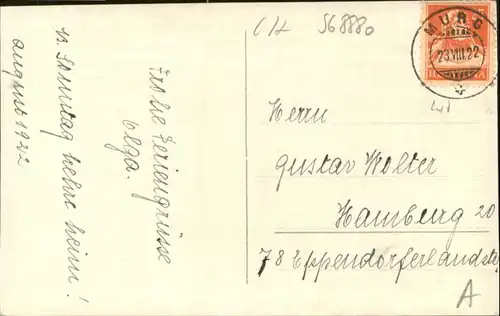 CH 568880
MURG
23.VIII.22
Frohe Feriengrüsse
Olga.
Sonntag kehre heim!
august 1922
Herrn
Gustav Wolter
Hamburg 20
78 Eppendorferlandstr
A